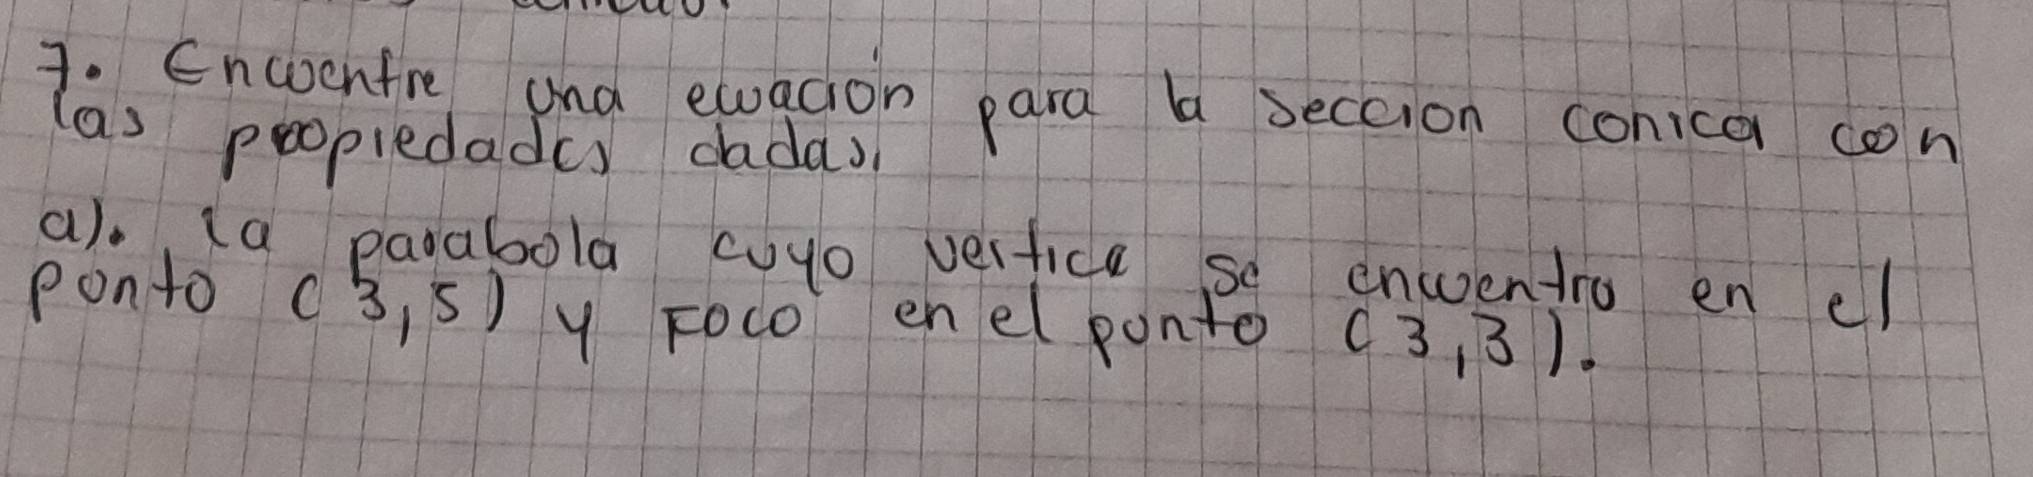 7. Encuentre una ecuación para la seccion conica con
las propiedades dadas,
a). la parabola cuyo vertice se encuentra en el
punto (3,5) y Foco en el punto (3,3).